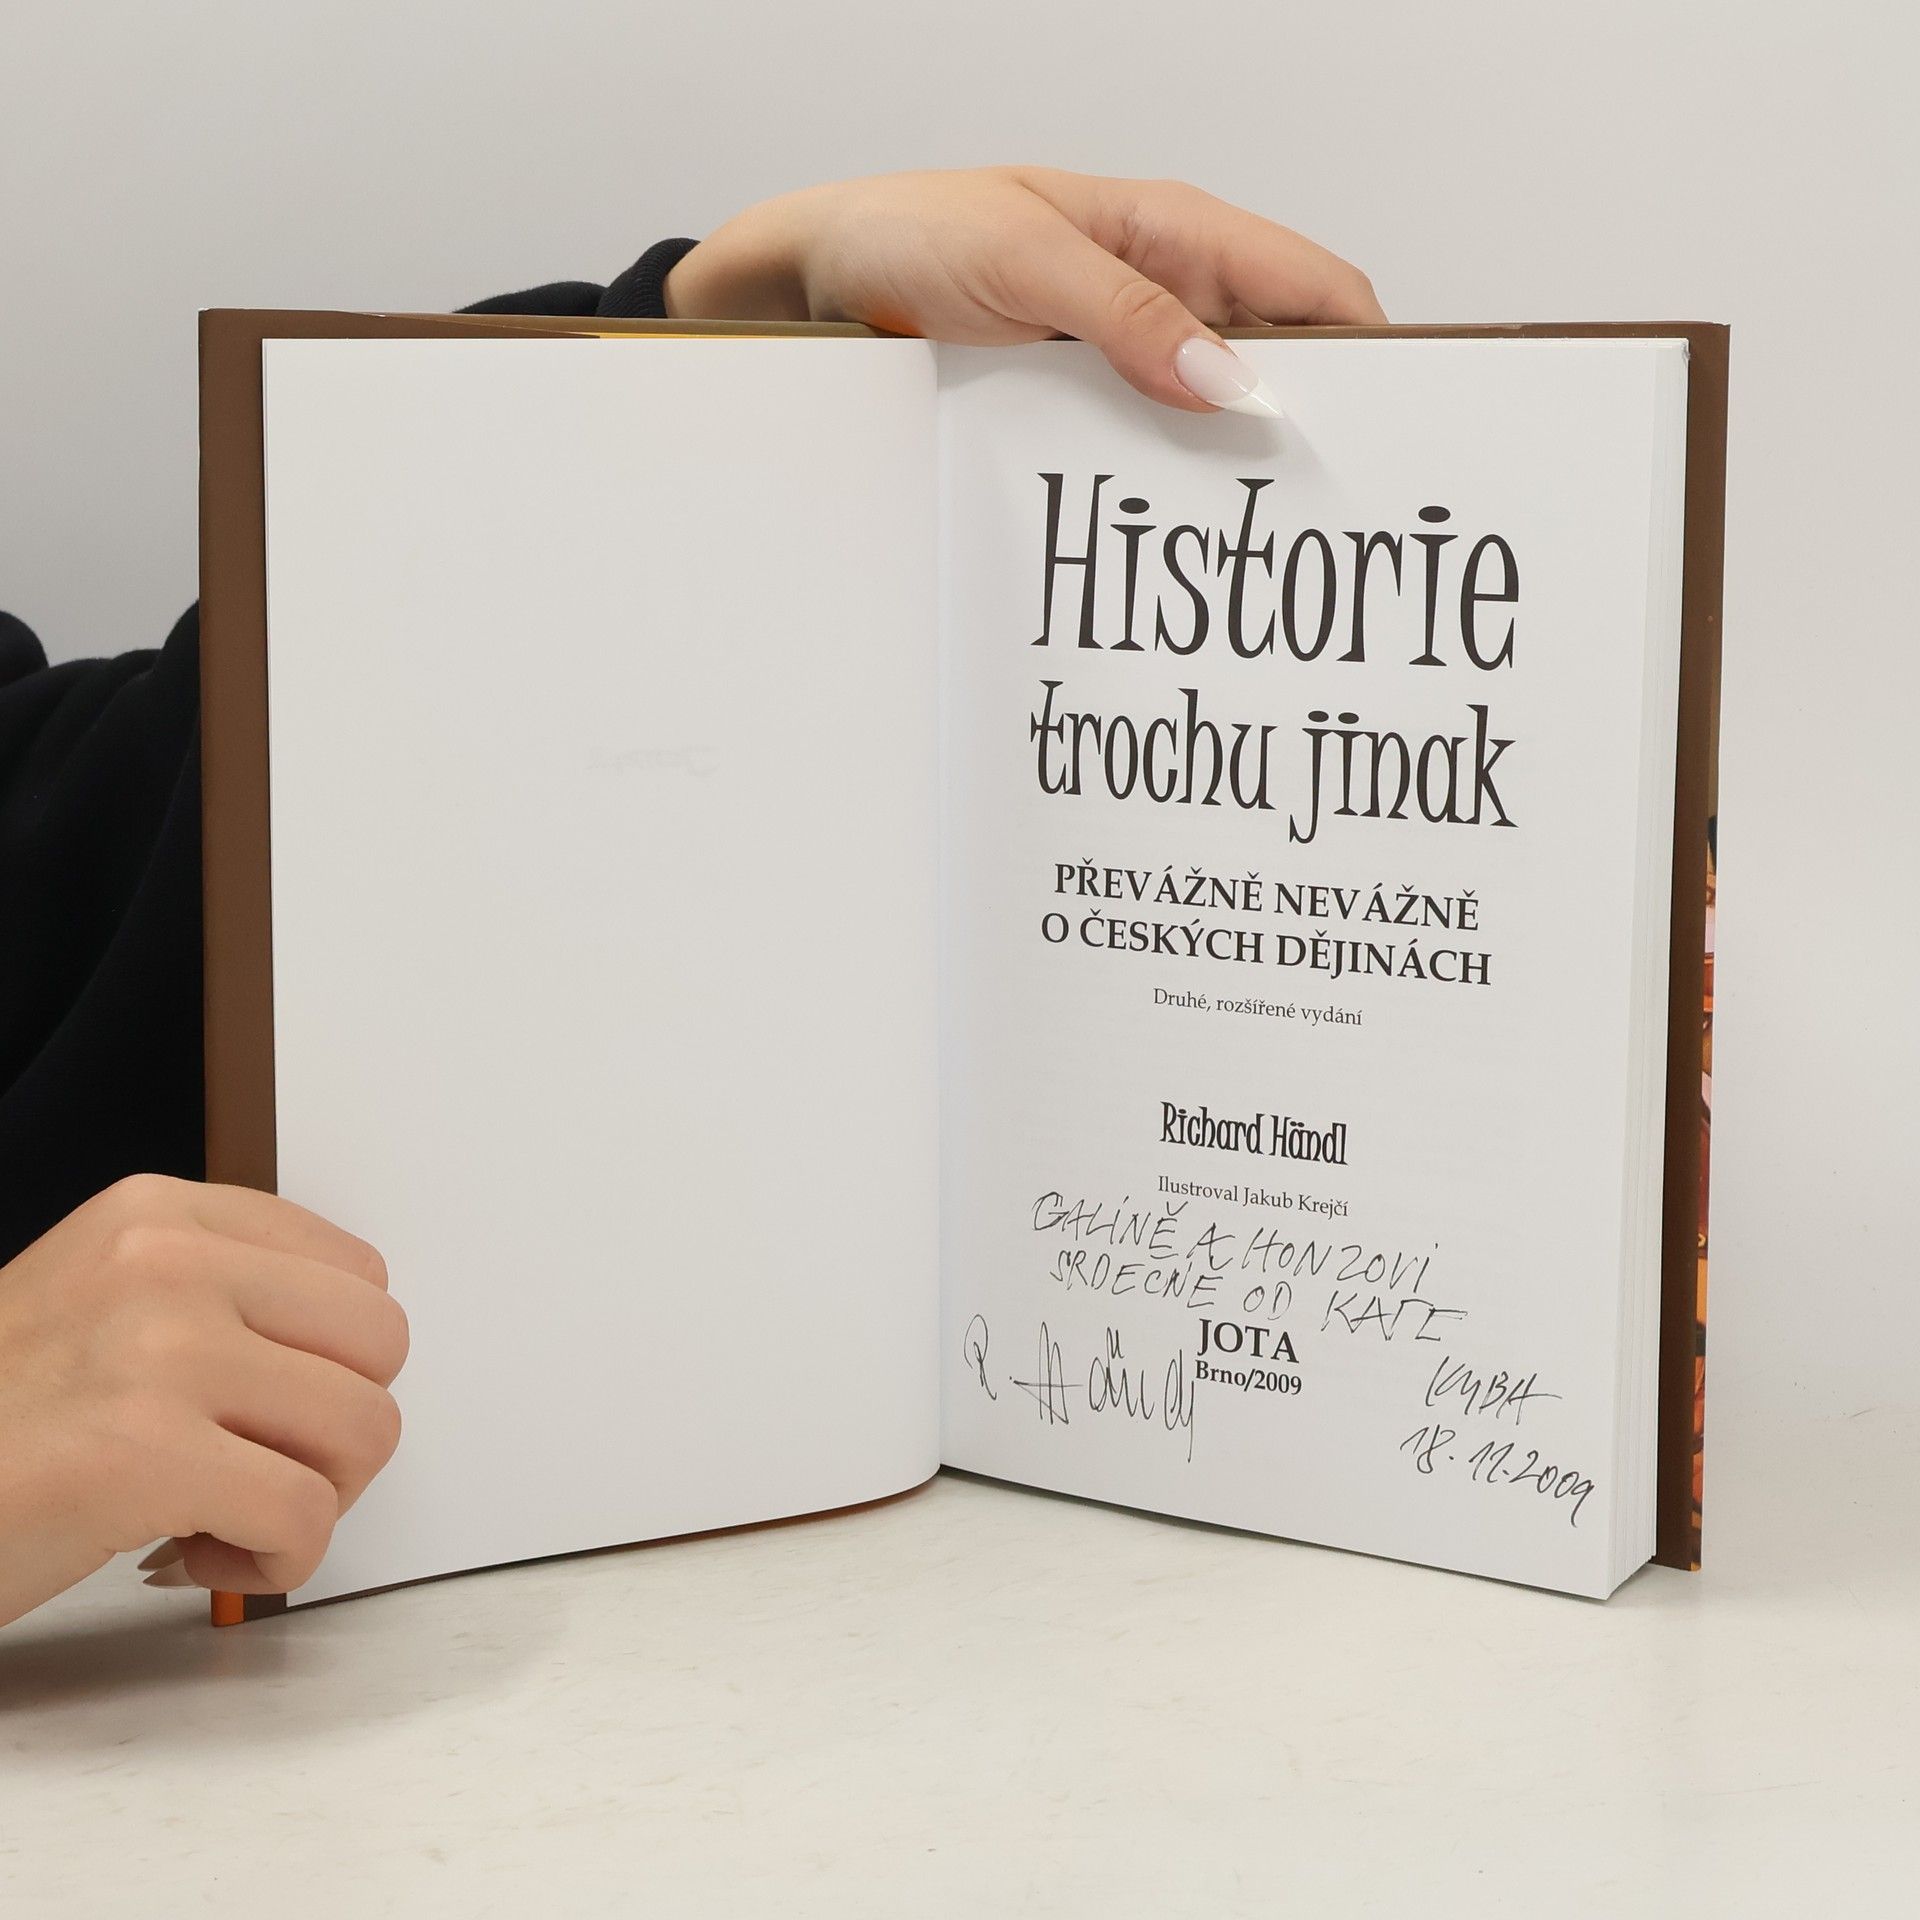 Historie
trochu jinak
PŘEVÁŽNĚ NEVÁŽNĚ
O ČESKÝCH DĚJINÁCH
Druhé, rozšířené vydání
Richard Händl
Ilustroval Jakub Krejčí
GALINĚ A HONZOVI
SRDEČNĚ OD KATE
JOTA
Brno/2009
R. Händl
18.11.2009